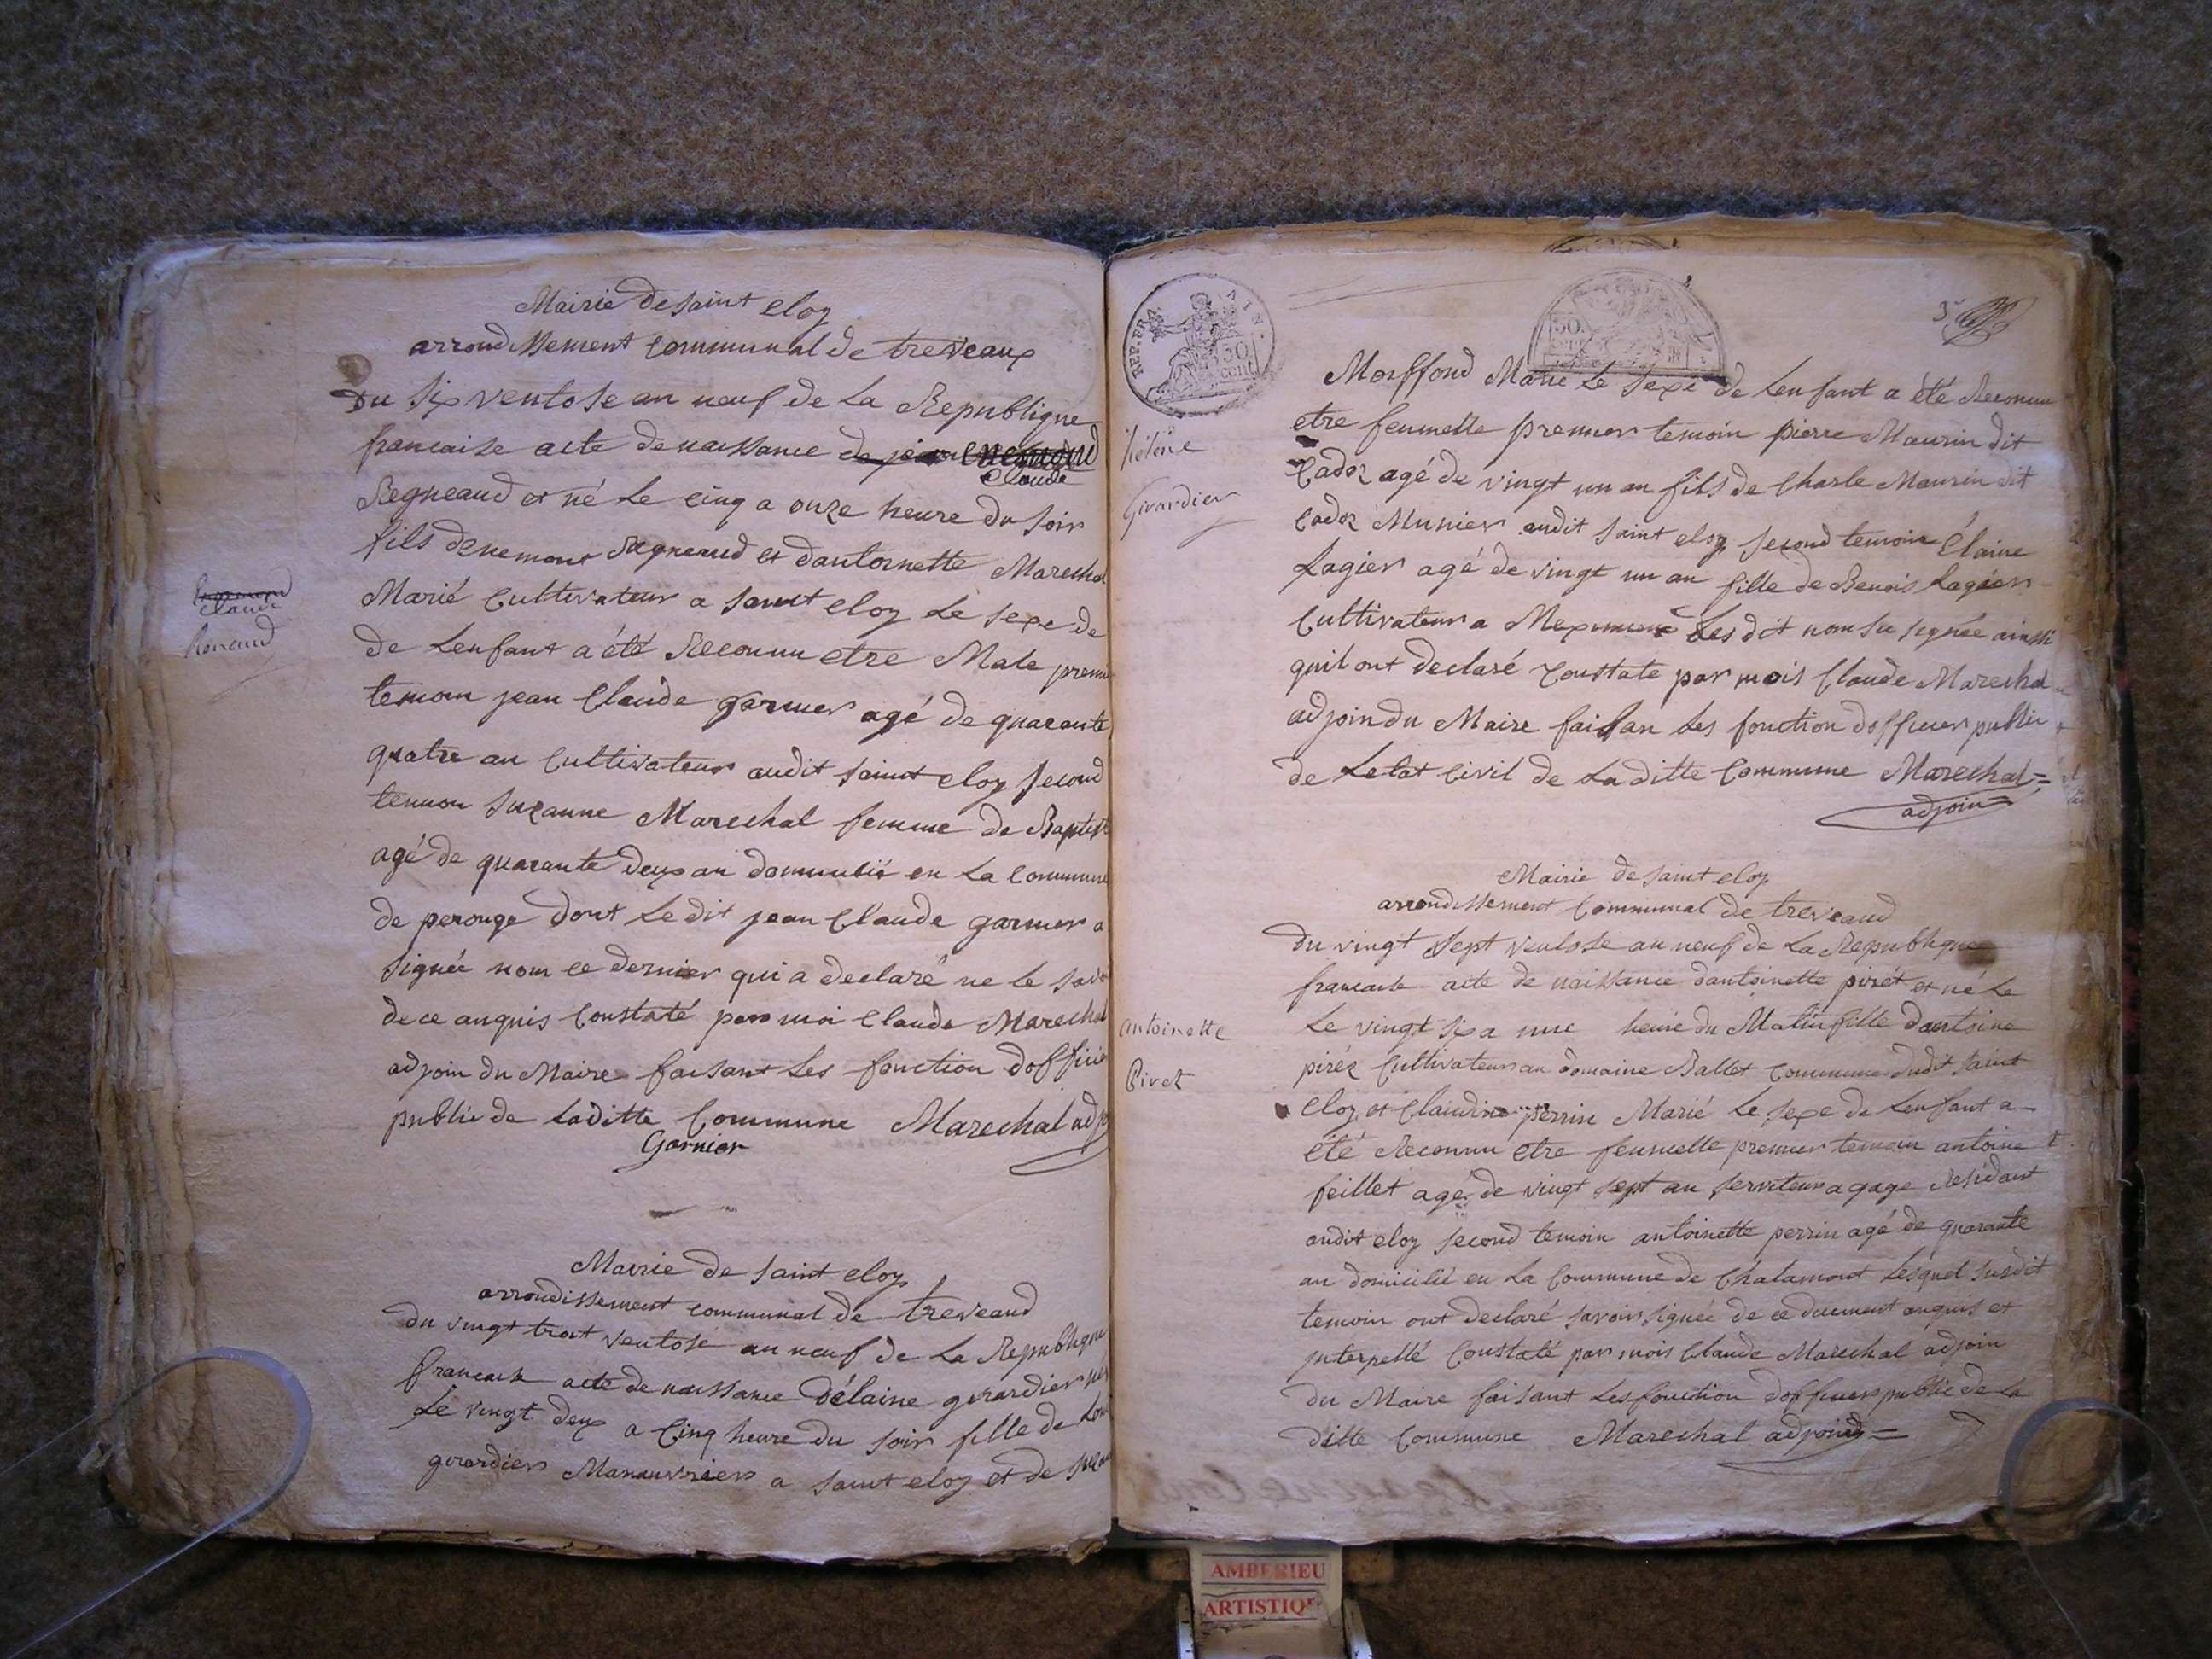 Mairie de saint eloy
arrondissement communal de treveaux
Du six ventose an neuf de la Republique
francaise acte de naissance de jean
Claude
Regneaud et né le cinq a onze heure du soir
fils denemont Regneaud et dantoinette Marechal
Marié Cultivateur a saint eloy le sexe de
de Lenfant a été Reconnu etre Male premi
temoin jean Claude garnier agé de quarante
quatre an Cultivateur audit saint eloy second
temoin suzanne Marechal femme de Baptist
agé de quarante deux an domicilié en la commune
de perouge dont le dit jean Claude garnier a
signée nom ce dernier qui a declaré ne le savo
de ce anquis Constaté par moi Claude Marechal
adjoin du Maire faisant les fonction dofficie
public de laditte Commune Marechal adjo
Garnier
Claude
Renaud
Mairie de saint eloy
arrondissement communal de treveaud
du vingt troit ventose an neuf de la Republique
francaise acte de naissance délaine girardier née
Le vingt deux a Cinq heure du soir fille de Loui
girardier Manauvrier a saint eloy et de suzan
REP. FRA. AIN.
50 cent
50
3e
Morffond Marié Le sexe de Lenfant a été Reconnu
etre feumelle premier temoin pierre Maurin dit
Cadoz agé de vingt un an fils de Charle Maurin dit
Cadoz Munier audit saint eloy second temoin élaine
Lagier agé de vingt un an fille de Benois Lagier
Cultivateur a Meximieu Les dit nom su signée ainssi
quil ont declaré Constate par mois Claude Marechal
adjoin du Maire faisan les fonction dofficier public
de Letat Civil de la ditte Commune Marechal
adjoin
hélène
Girardier
Mairie de saint eloy
arrondissement Communal de treveaud
Du vingt sept ventose an neuf de la Republique
francaise acte de naissance dantoinette pirét et né le
Le vingt six a une heure du Matin fille dantoine
piréz Cultivateur au domaine Ballet commune dudit saint
eloy et Claudine perrin Marié le sexe de Lenfant a
été Reconnu etre feumelle premier temoin antoine
feillet agé de vingt sept an serviteur a gage Residant
audit eloy second temoin antoinette perrin agé de quarante
an domicilié en la Commune de Chalamont lesquel susdit
temoin ont declaré savoir signée de ce duement anquis et
jnterpellé Constaté par mois Claude Marechal adjoin
du Maire faisant les fonction dofficier public de la
ditte Commune Marechal adjoint
antoinette
Piret
AMBERIEU
ARTISTIQ